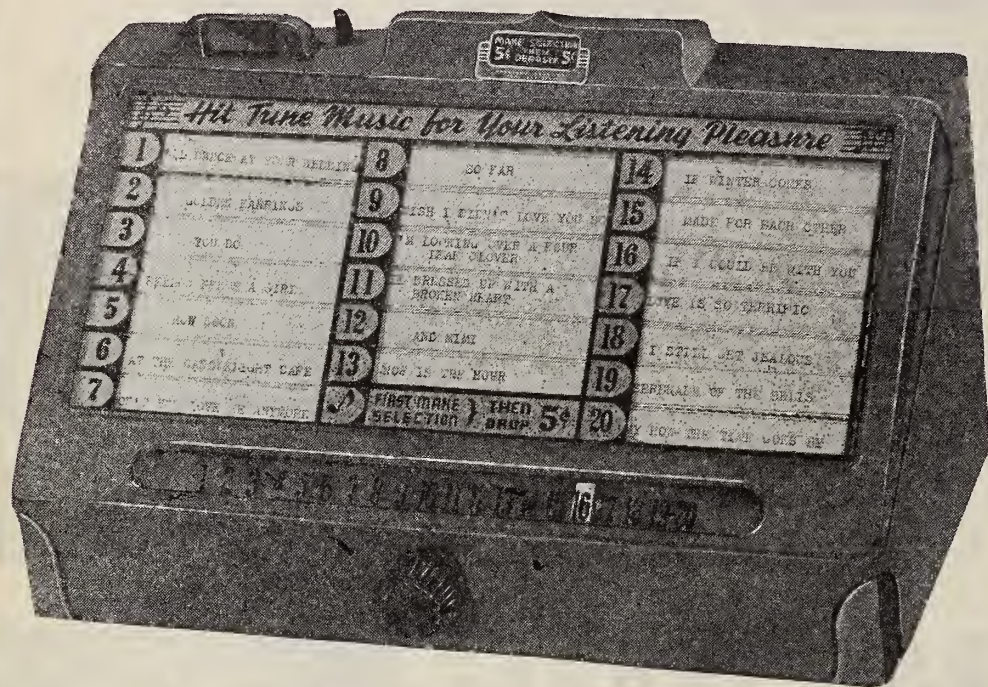 MAKE SELECTION
THEN
5¢ DEPOSIT 5¢
Hit Tune Music for Your Listening Pleasure
1 DANCE AT YOUR WEDDING
2 GOLDEN EARRINGS
3 YOU DO
4 A GIRL
5 SOON
6 AT THE CANDLELIGHT CAFE
7 LOVE ME ANYMORE
8 SO FAR
9 WISH I DIDN'T LOVE YOU SO
10 I'M LOOKING OVER A FOUR
LEAF CLOVER
11 DRESSED UP WITH A
BROKEN HEART
12 AND MIMI
13 NOW IS THE HOUR
FIRST MAKE
SELECTION } THEN
DROP 5¢
14 IF WINTER COMES
15 MADE FOR EACH OTHER
16 IF I COULD BE WITH YOU
17 LOVE IS SO TERRIFIC
18 I STILL GET JEALOUS
19 SERENADE OF THE BELLS
20 MY HOW THE TIME GOES BY
16